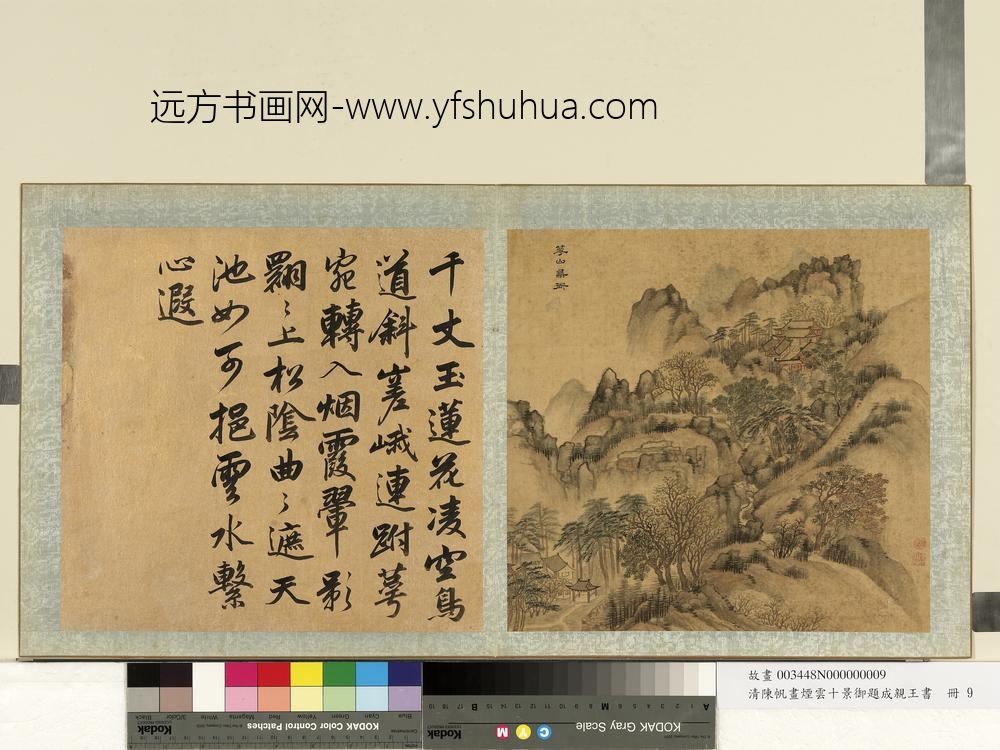 远方书画网-www.yfshuhua.com
華山集翠
千丈玉蓮花凌空鳥
道斜嵳峨連跗萼
宛轉入烟霞翬影
翾〻上松陰曲〻遮天
池如可挹雲水繫
心遐
故畫 003448N000000009
清陳帆畫煙雲十景御題成親王書 冊 9
Kodak
KODAK Color Control Patches
Blue
Cyan
Green
Yellow
Red
Magenta
White
3/Color
Black
Kodak
KODAK Gray Scale
C
Y
M
A 1 2 3 4 5 6 M 8 9 10 11 12 13 14 15 B 17 18 19